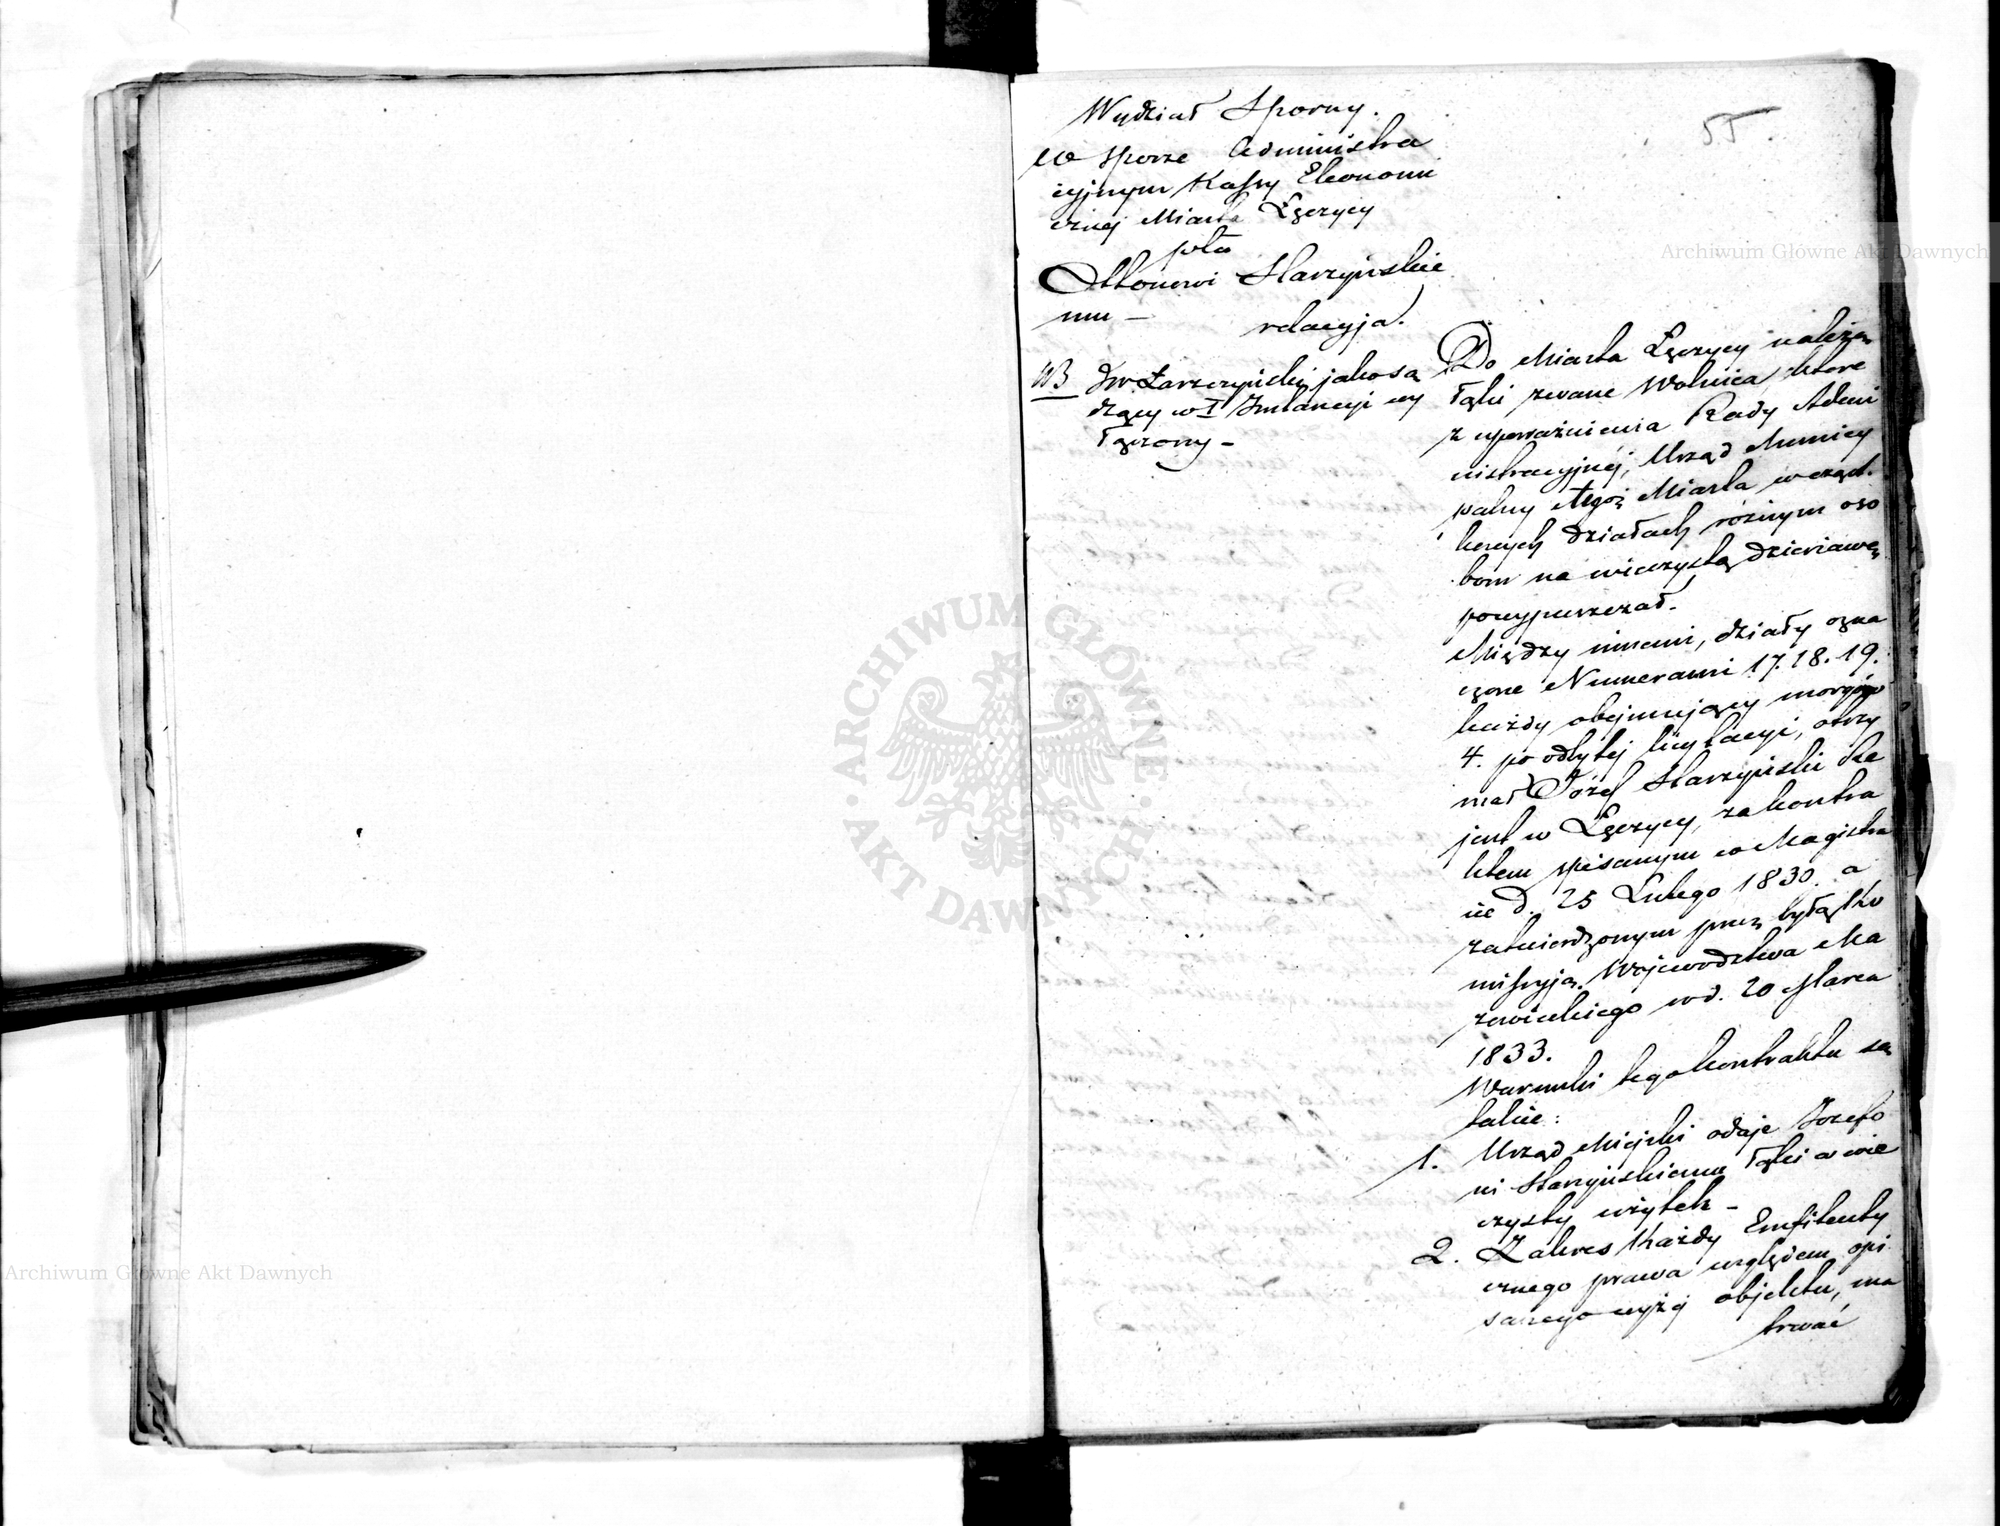 55.
Wydział Sporny.
w sporze Administra
cyjnym Kassy Ekonomi
cznej Miasta Łęczycy
pko
Ottonowi Starzyńskie
mu —
relacyja.
NB jako są
dzący w I Instancyi wy
łączony –
Do Miasta Łęczycy należą
łąki zwane Wolnica, które
z upoważnienia Rady Admi
nistracyjnéj, Urząd Municy
palny tegoż Miasta w cząst
kowych działach różnym oso
bom na wieczystą dzierżawę
powypuszczał.
Między innemi, działy ozna
czone Numerami 17. 18. 19.
każdy obejmujący morgów
4. po odbytej licytacyi, otrzy
mał Józef Starzyński Re
jent w Łęczycy, za kontra
ktem spisanym w Magistra
cie d. 25 Lutego 1830. a
zatwierdzonym przez byłą Ko
missyją Województwa Ma
zowieckiego w d. 20 Marca
1833.
Warunki tego kontraktu są
takie:
1. Urząd Miejski odaje Józefo
wi Starzyńskiemu łąki w wie
czysty użytek –
2. Zakres Każdy Emfiteuty
cznego prawa względem opi
sanego wyżej objektu, ma
trwać
Archiwum Główne Akt Dawnych
ARCHIWUM GŁÓWNE
AKT DAWNYCH
Archiwum Główne Akt Dawnych